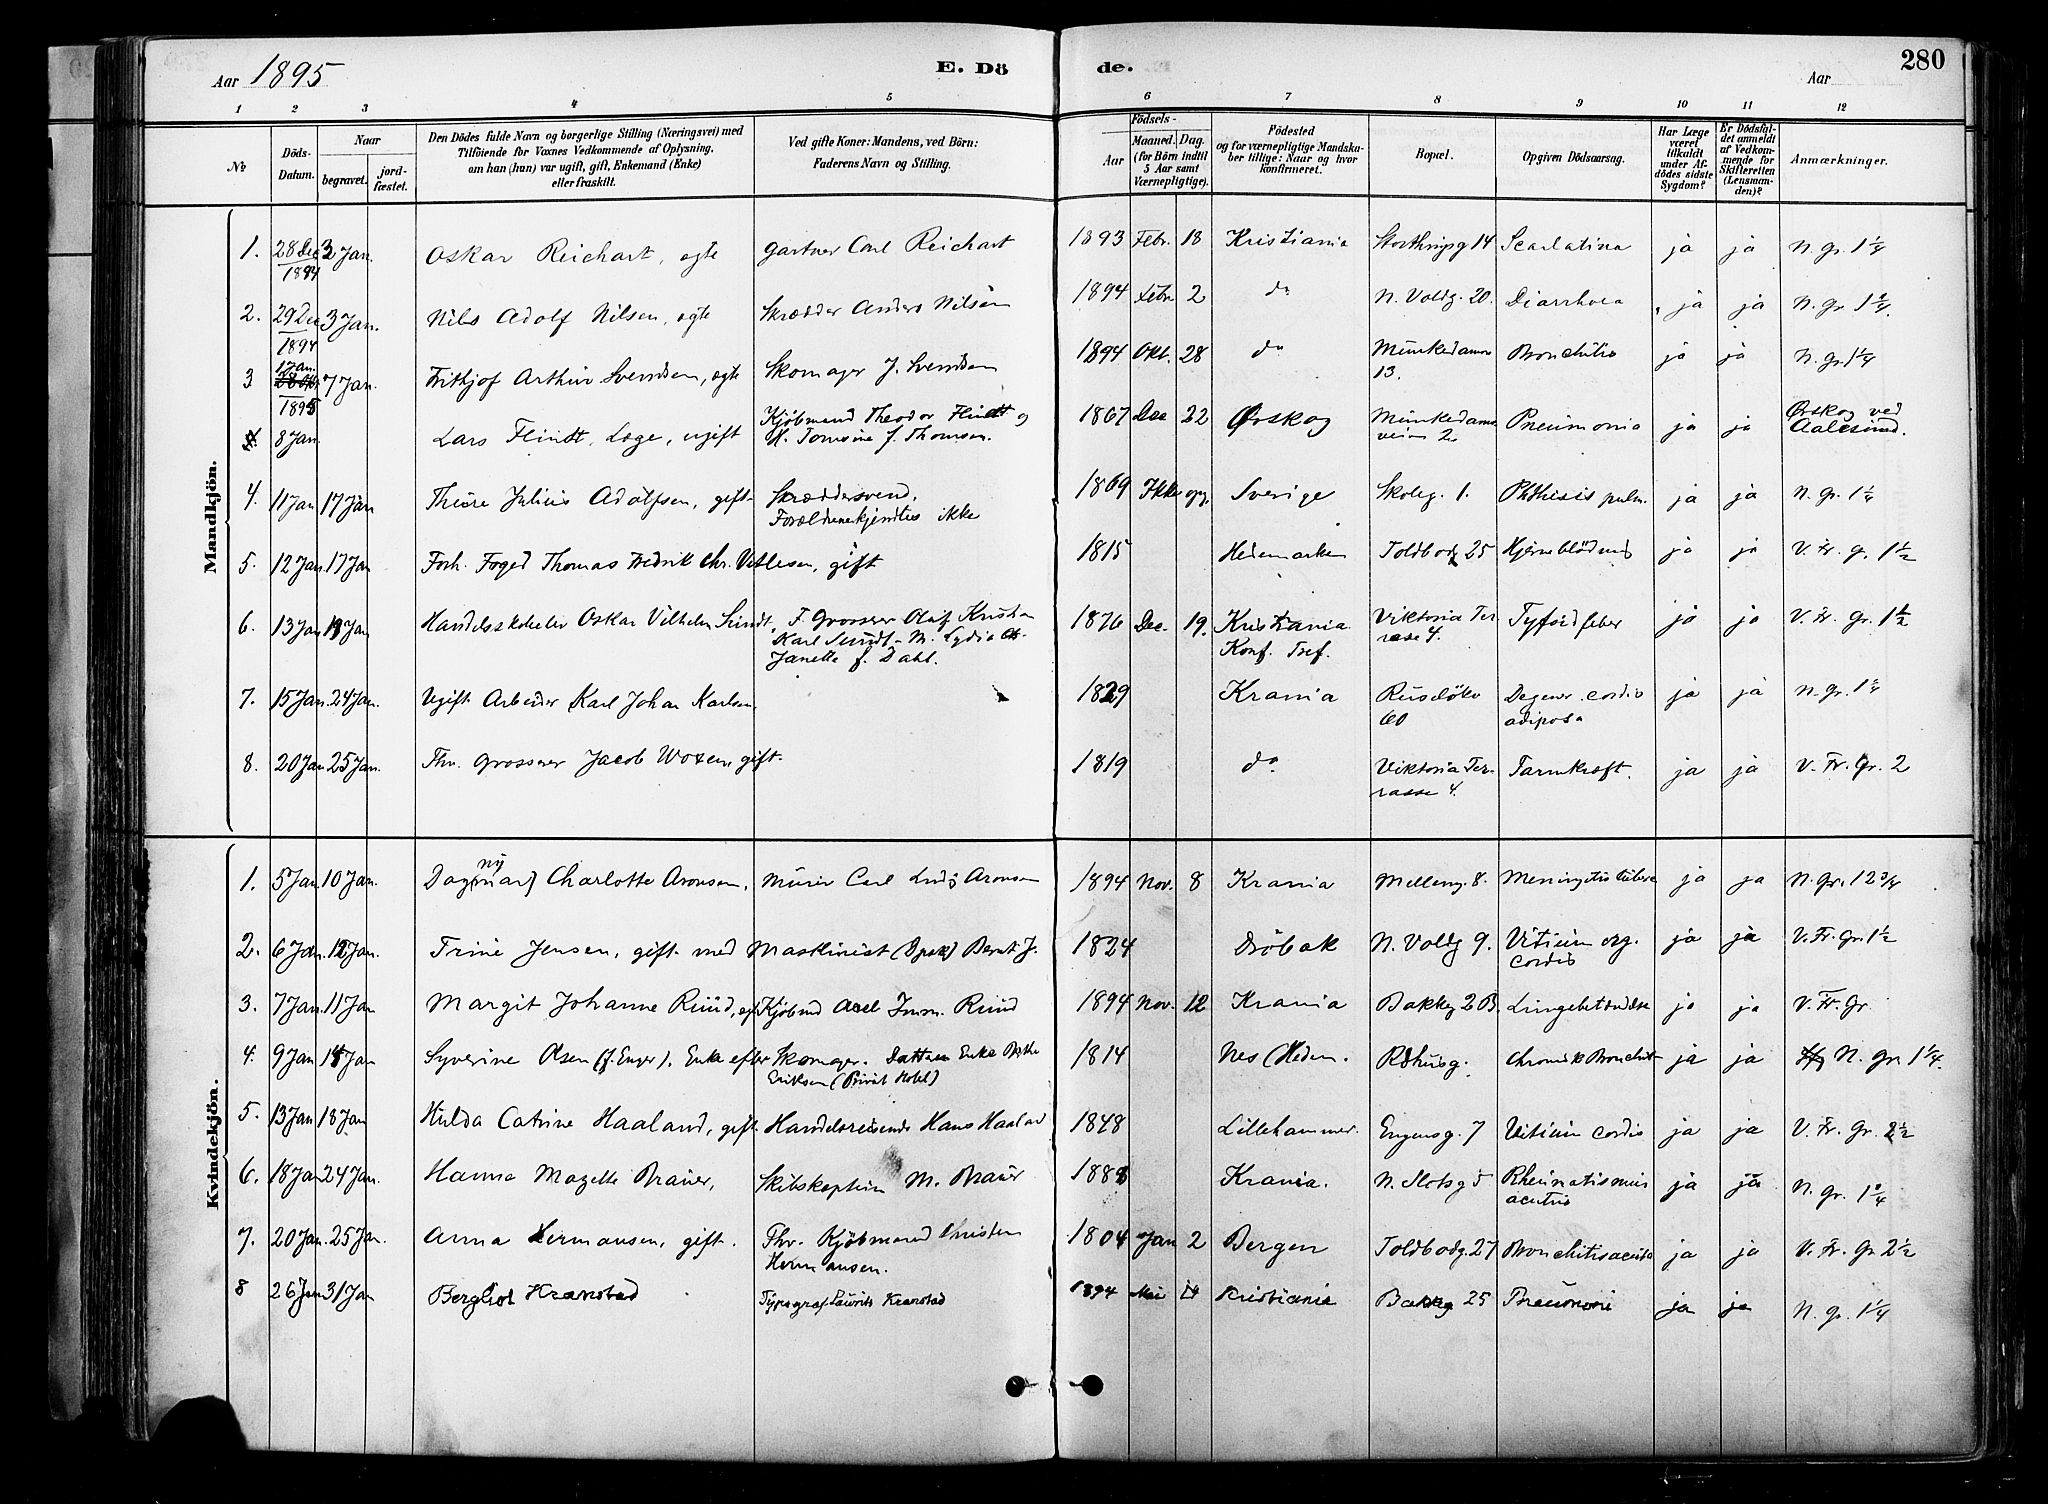 280
Aar 1895
E. Dö
de.
Aar
1 2 3 4 5 6 7 8 9 10 11 12
№
Döds-Datum.
Naar
begravet.
jord-fæstet.
Den Dödes fulde Navn og borgerlige Stilling (Næringsvei) med
Tilföiende for Voxnes Vedkommende af Oplysning,
om han (hun) var ugift, gift, Enkemand (Enke)
eller fraskilt.
Ved gifte Koner: Mandens, ved Börn:
Faderens Navn og Stilling.
Födsels-
Aar
Maaned. Dag.
(for Börn indtil
5 Aar samt
Værnepligtige).
Födested
og for værnepligtige Mandska-
ber tillige: Naar og hvor
konfirmeret.
Bopæl.
Opgiven Dödsaarsag.
Har Læge
været
tilkaldt
under Af-
dödes sidste
Sygdom?
Er Dödsfal-
det anmeldt
af Vedkom-
mende for
Skifteretten
(Lensman-
den)?
Anmærkninger.
Mandkjön.
1. 28 Dec 1894 3 Jan. Oskar Reichart, ægte Gartner Carl Reichart 1893 Febr. 18 Kristiania Storthingsg 14 Scarlatina ja ja N. gr. 1 1/4
2. 29 Dec 1894 3 Jan. Nils Adolf Nilsen, ægte Skrædder Anders Nilsen 1894 Febr 2 do N. Voldg. 20. Diarrhoea ja ja N. Gr. 1 2/4
3 1 Jan. 1895 7 Jan. Frithjof Arthur Svendsen, ægte Skomager J. Svendsen 1894 Okt. 28 do Munkedamsv 13. Bronchitis ja ja N. gr. 1 1/4
8 Jan. Lars Flindt, Læge, ugift Kjöbmand Theodor Flindt og
M. Tomine f. Thomsen. 1867 Dec 22 Ørskog Munkedams
veien 2. Pneumonia ja ja Ørskog ved
Aalesund.
4. 11 Jan 17 Jan Thure Julius Adolfsen, gift Skræddersvend.
Forældrene kjendtes ikke 1869 Ikke opg. Sverige Skoleg. 1. Phthisis pulm. ja ja N. gr. 1 1/4
5. 12 Jan. 17 Jan Forh. Foged Thomas Fredrik Chr. Vetlesen, gift 1815 Hedemarken Toldbodg 25 Hjerneblödning ja ja V. Fr. G. 1 1/2
6. 13 Jan 19 Jan Handelsskoleelev Oskar Vilhelm Sundt F. Grosserer Oluf Kristian
Karl Sundt - M. Lydia
Janette f. Dahl. 1876 Dec. 19. Kristiania
Konf. Tref. Viktoria Ter
rasse 4. Tyfoidfeber ja ja V. Fr. Gr. 1 1/2
7. 15 Jan. 24 Jan. Ugift Arbeider Karl Johan Karlsen 1829 Krania Rusölökv
60 Degener. cordis
adiposa ja ja N. gr. 1 2/4
8. 20 Jan 25 Jan. Fhv. Grosserer Jacob Woxen, gift. 1819 do Viktoria Ter-
rasse 4. Tarmkræft. ja ja V. Fr. Gr. 2
Kvindekjön.
1. 5 Jan 10 Jan. Dagny Charlotte Aronsen, Murer Carl Ludv Aronsen 1894 Nov. 8 Krania Mölleng. 8. Meningitis tuberc ja ja N. Gr. 1 2 3/4
2. 6 Jan. 12 Jan. Trine Jensen, gift med Maskinist Bernt J. 1824 Dröbak N. Voldg 9. Vitium org.
cordis ja ja V. Fr. Gr. 1 1/2
3. 7 Jan. 11 Jan Margit Johanne Ruud, ægte Kjöbmd Axel Imm. Ruud 1894 Nov. 12 Krania Bakkeg 2 B. Lungebetændelse ja ja V. Fr. Gr
4. 9 Jan 15 Jan Syverine Olsen (f. Enger). Enke efter Skomager. Datteren Enke Berthe
Eriksen (Privat Hotel) 1814 Nes (Hedem. Rdhusg. Chronisk Bronchit ja ja N. Gr. 1 1/4.
5. 13 Jan 18 Jan Hilda Catrine Haaland, gift Handelsreisende Hans Haaland 1848 Lillehammer. Engensg. 7 Vitium cordis ja ja V. Fr. Gr. 2 1/2
6. 18 Jan 24 Jan. Hanna Mazette Brauer, Skibskaptein M. Brauer 1888 Krania. N. Slotsg 5 Rheumatismus
acutus ja ja N. gr. 1 2/4
7. 20 Jan. 25 Jan. Anna Hermansen, gift. Fhv. Kjöbmand Christen
Hermansen. 1804 Jan 2 Bergen Toldbodg. 27 Bronchitis acuta ja ja V. Fr. Gr 2 1/2
8 26 Jan 31 Jan Bergliot Kranstad Typograf Laurits Kranstad 1894 Mai Kristiania Bakkeg 25 Pneumoni ja ja N. gr. 1 1/4